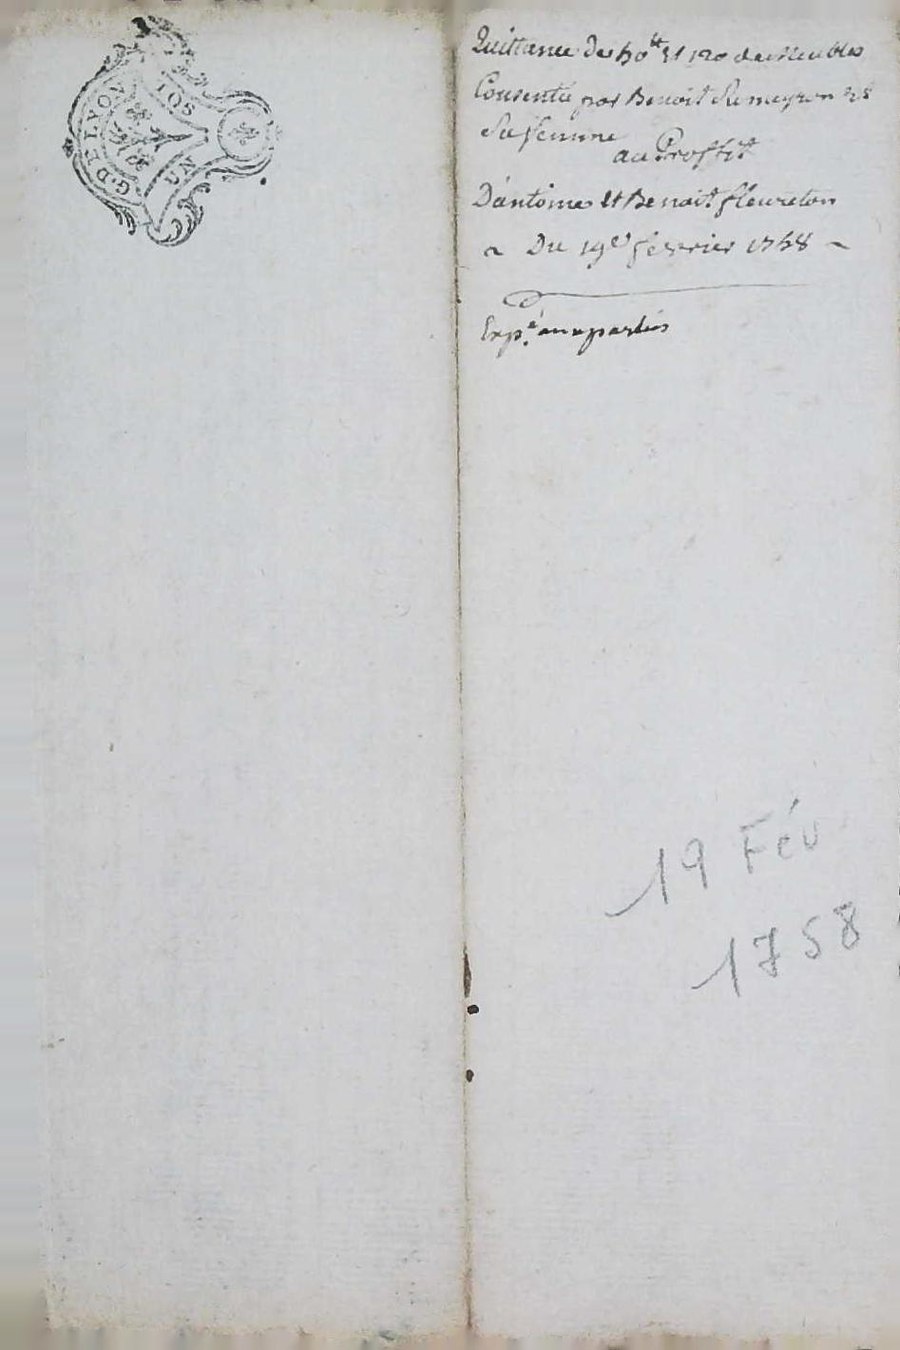 G. DE LYON
UN SOL
Quittance de 50lt et 120 de Meubles
Consentie par Benoit &
Sa femme
au Proffit
D'antoine et Benoit fleureton
~ Du 19e février 1758 ~
Expé aux parties
19 Fév
1758